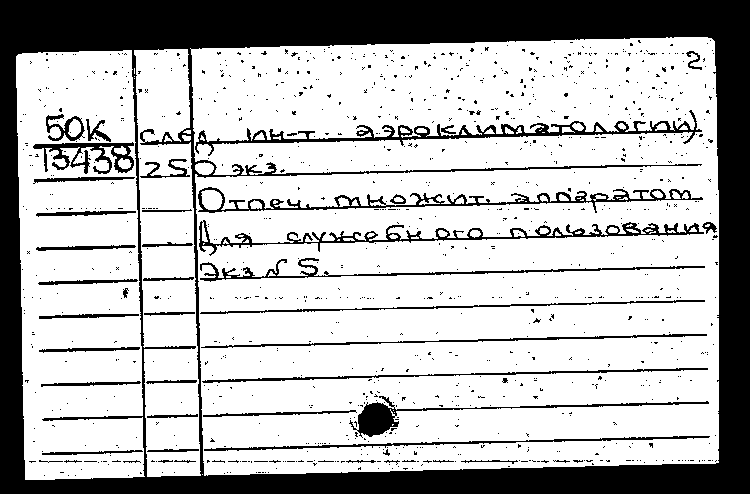 2
50К след. ин-т аэроклиматологии).
13438 250 экз.
Отпеч. множит. аппаратом
Для служебного пользования
Экз № 5.